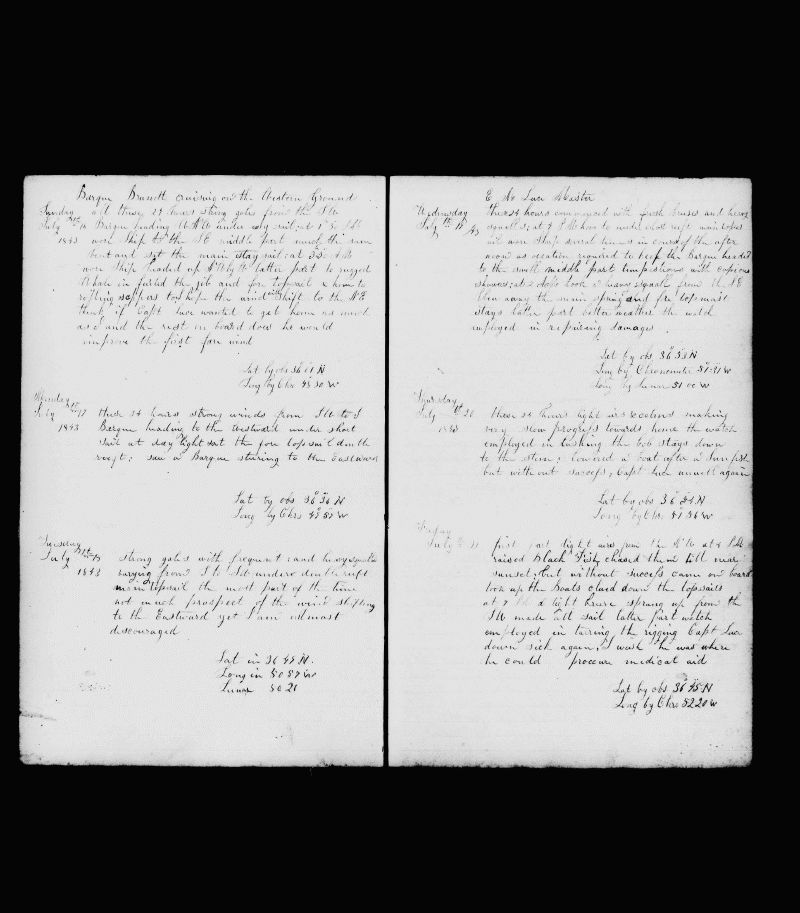 Barque Bruseit cruising on the Western Ground
Sunday all these 24 hours strong gales from the SW
July 16th Barque heading under easy sail at
1843 wore Ship to the SE middle part much the same
bent and set the main stay sail at 3.30 AM
wore Ship headed up latter part to rugged
Whale in furled the jib and fore topsail
the wind will shift to the NE
think if Capt Luce wanted to get home as much
as I and the rest on board does he would
improve the first fare wind
Lat by obs 36 01 N
Long by Chr W
Monday
July 17 these 24 hours strong winds from SW to S
1843 Barque heading to the Westward under short
sail at day light set the fore topsail double
reeft; saw a Barque steering to the Eastward
Lat by obs 36 36 N
Long by Chrs W
Tuesday
July 18th strong gales with frequent and heavy squalls
1843 varying from SW under double reeft
main topsail the most part of the time
not much prospect of the wind shifting
to the Eastward yet I am allmost
discouraged
Lat in 36 N.
Long in 50 W
Lunar 50 21
Luce Master
Wednesday these 24 hours commenced with fresh breeses and heavy
July 19th 43 squalls; at 7 PM hove to under close reeft main topsail
wore Ship several times in course of the after
noon as occation required to keep the Barque headed
to the swell middle part tempestuous with copious
showers; at 2 took a heavy squall from the
blew away the main spring and fore topmast
stays latter part better weather the watch
employed in repairing damages
Lat by obs 36 33 N
Long by Chronometer W
Long by Lunar 51 00 W
Thursday
July 20 these 24 hours light airs & calms making
1843 very slow progress towards home the watch
employed in lashing the bob stays down
to the stem; lowered a boat after a Sun fish
but without success, Capt Luce unwell again
Lat by obs 36 N
Long by Chr 51 36 W
Friday
July 21 first part light aires from the at 4 PM
raised Black Fish, chased them till near
sunset, but without success came on board
took up the Boats clued down the topsails
at 7 a light breese sprang up from the
SW made all sail latter part watch
employed in tarring the rigging Capt Luce
down sick again, I wish he was where
he could procure medical aid
Lat by obs 36 45 N
Long by Chrs 52 20 W